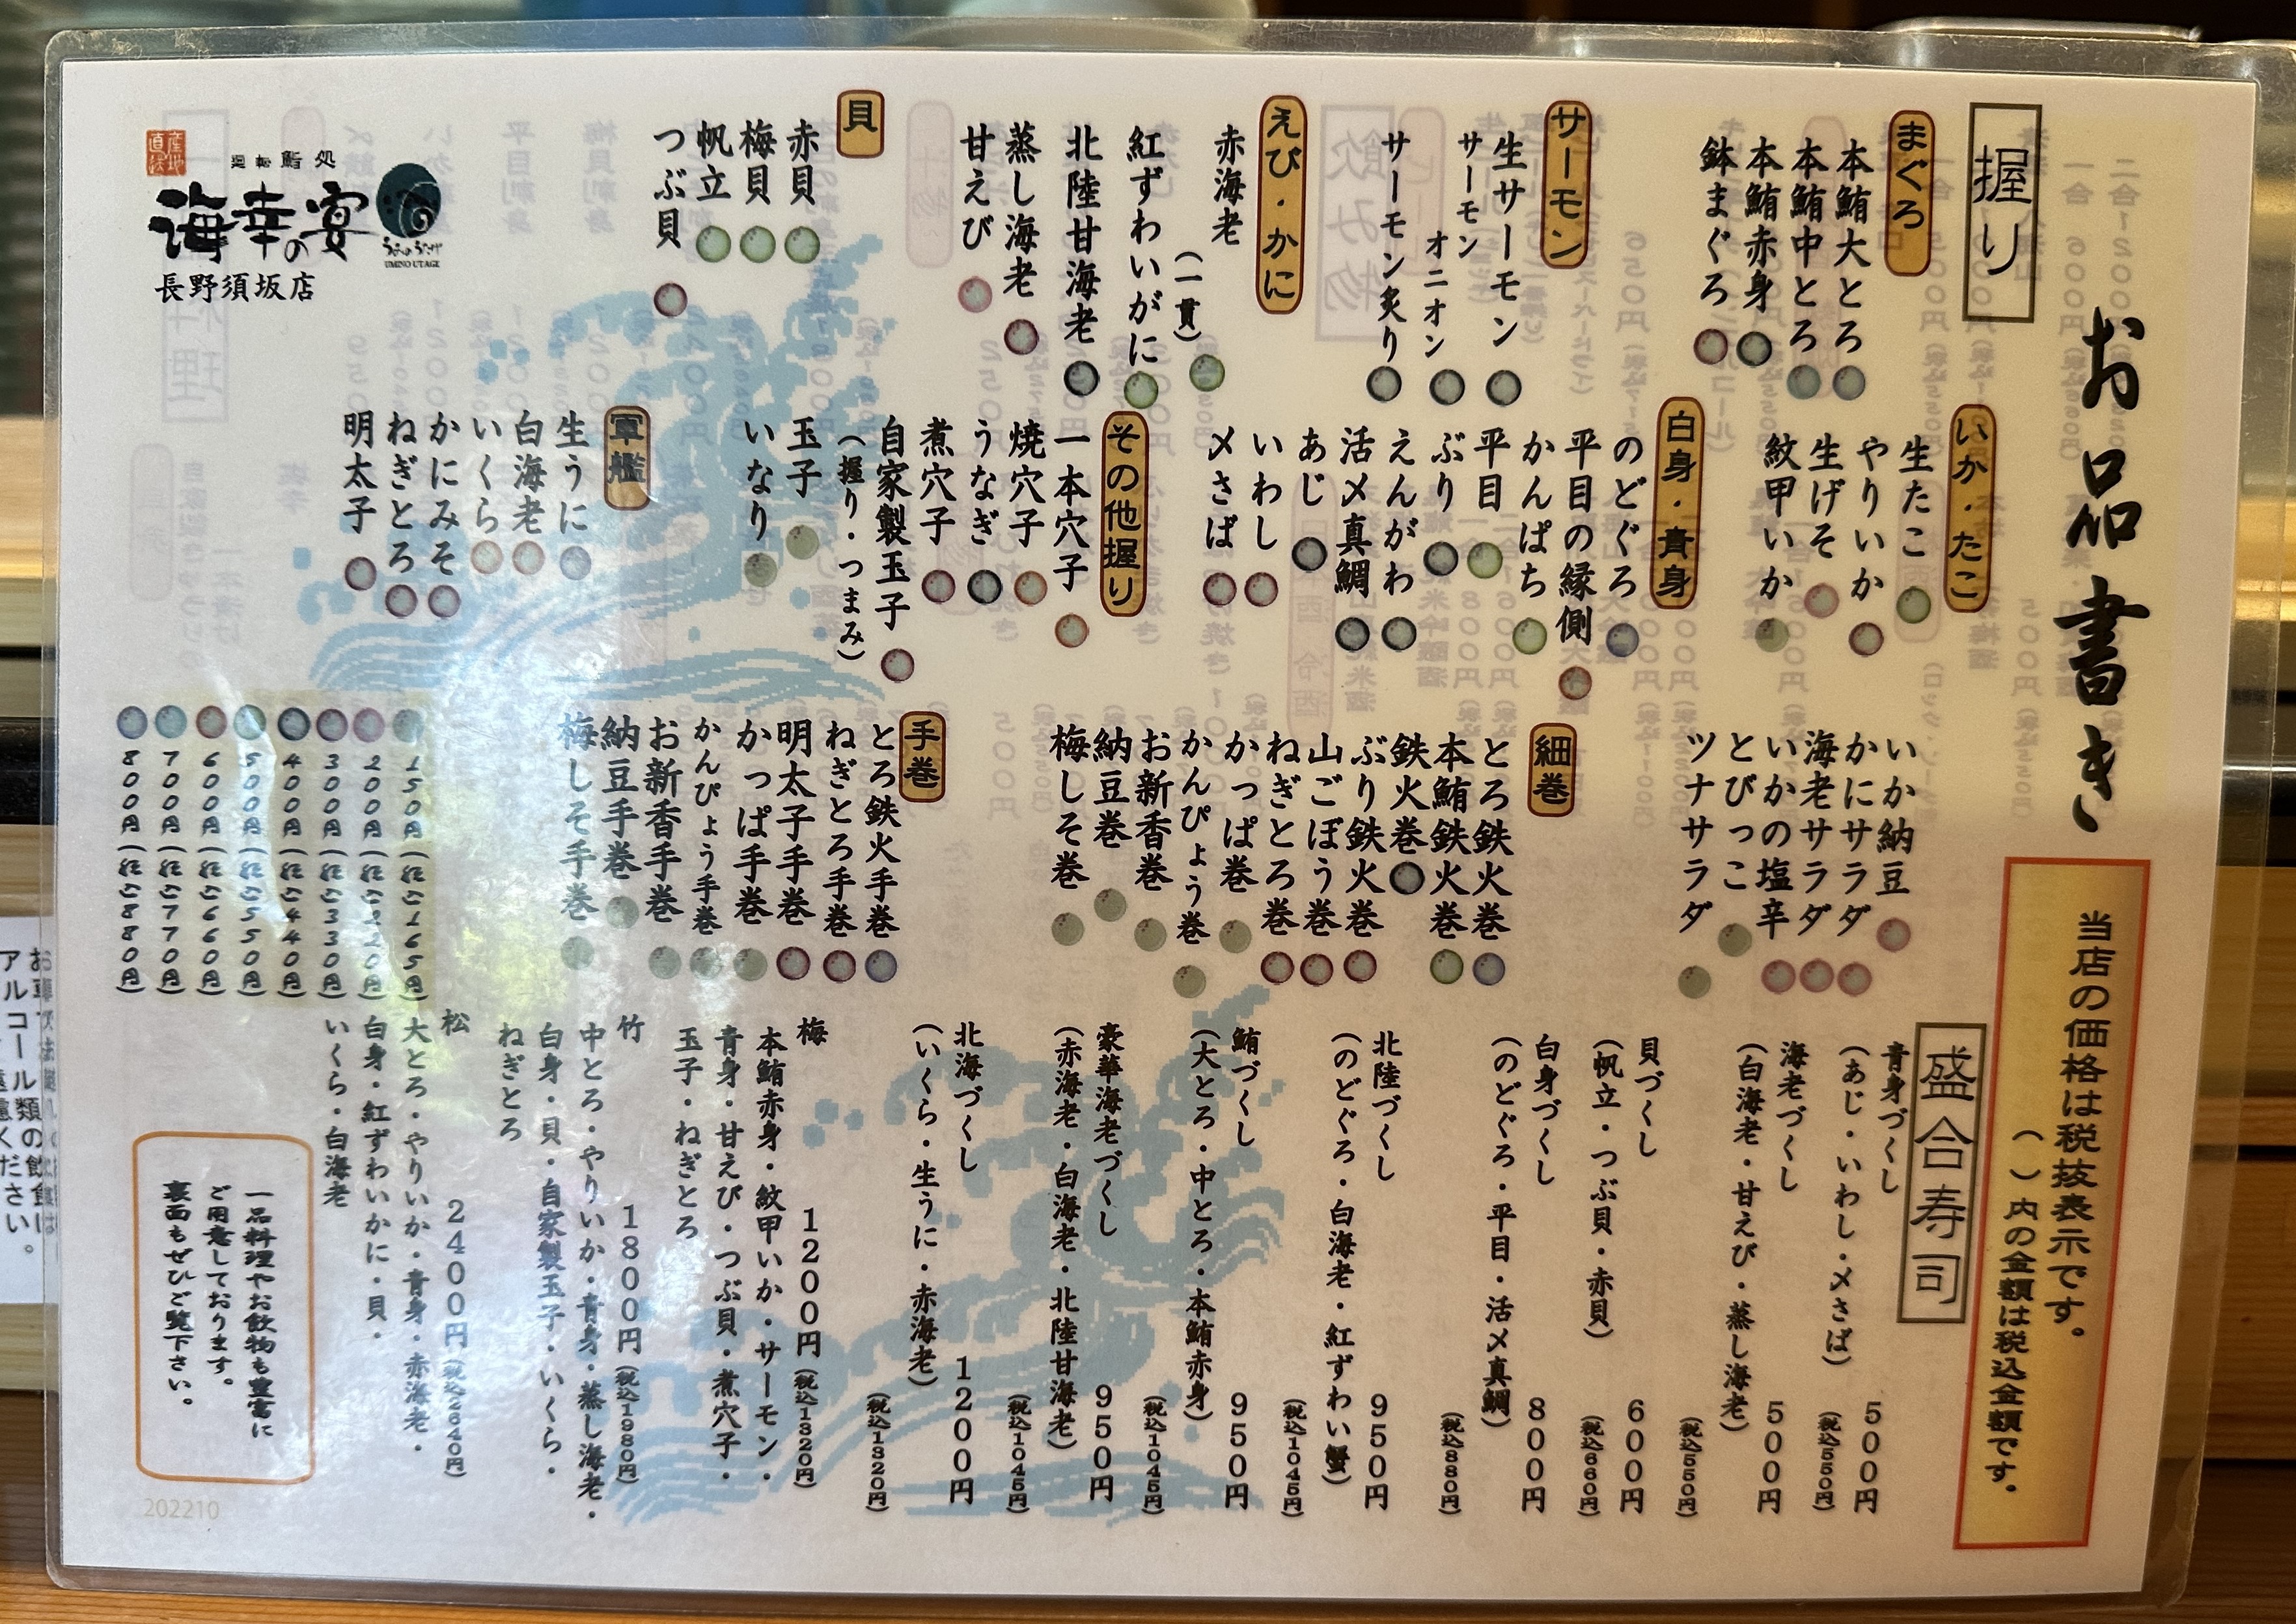 お品書き
当店の価格は税抜表示です。
（　）内の金額は税込金額です。
握り
まぐろ
本鮪大とろ
本鮪中とろ
本鮪赤身
鉢まぐろ
サーモン
生サーモン
サーモン
オニオン
サーモン炙り
えび・かに
赤海老
（一貫）
紅ずわいがに
北陸甘海老
蒸し海老
甘えび
貝
赤貝
梅貝
帆立
つぶ貝
産地
直送
廻転鮨処
海幸の宴
うみのうたげ
UMINO UTAGE
長野須坂店
いか・たこ
生たこ
やりいか
生げそ
紋甲いか
白身・青身
のどぐろ
平目の縁側
かんぱち
平目
ぶり
えんがわ
活〆真鯛
あじ
いわし
〆さば
その他握り
一本穴子
焼穴子
うなぎ
煮穴子
自家製玉子
（握り・つまみ）
玉子
いなり
軍艦
生うに
白海老
いくら
かにみそ
ねぎとろ
明太子
いか納豆
かにサラダ
海老サラダ
いかの塩辛
とびっこ
ツナサラダ
細巻
とろ鉄火巻
本鮪鉄火巻
鉄火巻
ぶり鉄火巻
山ごぼう巻
ねぎとろ巻
かっぱ巻
かんぴょう巻
お新香巻
納豆巻
梅しそ巻
手巻
とろ鉄火手巻
ねぎとろ手巻
明太子手巻
かっぱ手巻
かんぴょう手巻
お新香手巻
納豆手巻
梅しそ手巻
150円（税込165円）
200円（税込220円）
300円（税込330円）
400円（税込440円）
500円（税込550円）
600円（税込660円）
700円（税込770円）
800円（税込880円）
盛合寿司
青身づくし 500円
（あじ・いわし・〆さば） （税込550円）
海老づくし 500円
（白海老・甘えび・蒸し海老） （税込550円）
貝づくし 600円
（帆立・つぶ貝・赤貝） （税込660円）
白身づくし 800円
（のどぐろ・平目・活〆真鯛） （税込880円）
北陸づくし 950円
（のどぐろ・白海老・紅ずわい蟹） （税込1045円）
鮪づくし 950円
（大とろ・中とろ・本鮪赤身） （税込1045円）
豪華海老づくし 950円
（赤海老・白海老・北陸甘海老） （税込1045円）
北海づくし 1200円
（いくら・生うに・赤海老） （税込1320円）
梅 1200円（税込1320円）
本鮪赤身・紋甲いか・サーモン・
青身・甘えび・つぶ貝・煮穴子・
玉子・ねぎとろ
竹 1800円（税込1980円）
中とろ・やりいか・青身・蒸し海老・
白身・貝・自家製玉子・いくら・
ねぎとろ
松 2400円（税込2640円）
大とろ・やりいか・青身・赤海老・
白身・紅ずわいかに・貝・
いくら・白海老
一品料理やお飲物も豊富に
ご用意しております。
裏面もぜひご覧下さい。
202210